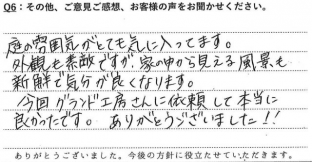 Q6：その他、ご意見ご感想、お客様の声をお聞かせください。
庭の雰囲気がとても気に入ってます。
外観も素敵ですが、家の中から見える風景も
新鮮で気分が良くなります。
今回グランド工房さんに依頼して本当に
良かったです。ありがとうございました!!
ありがとうございました。今後の方針に役立たせていただきます。